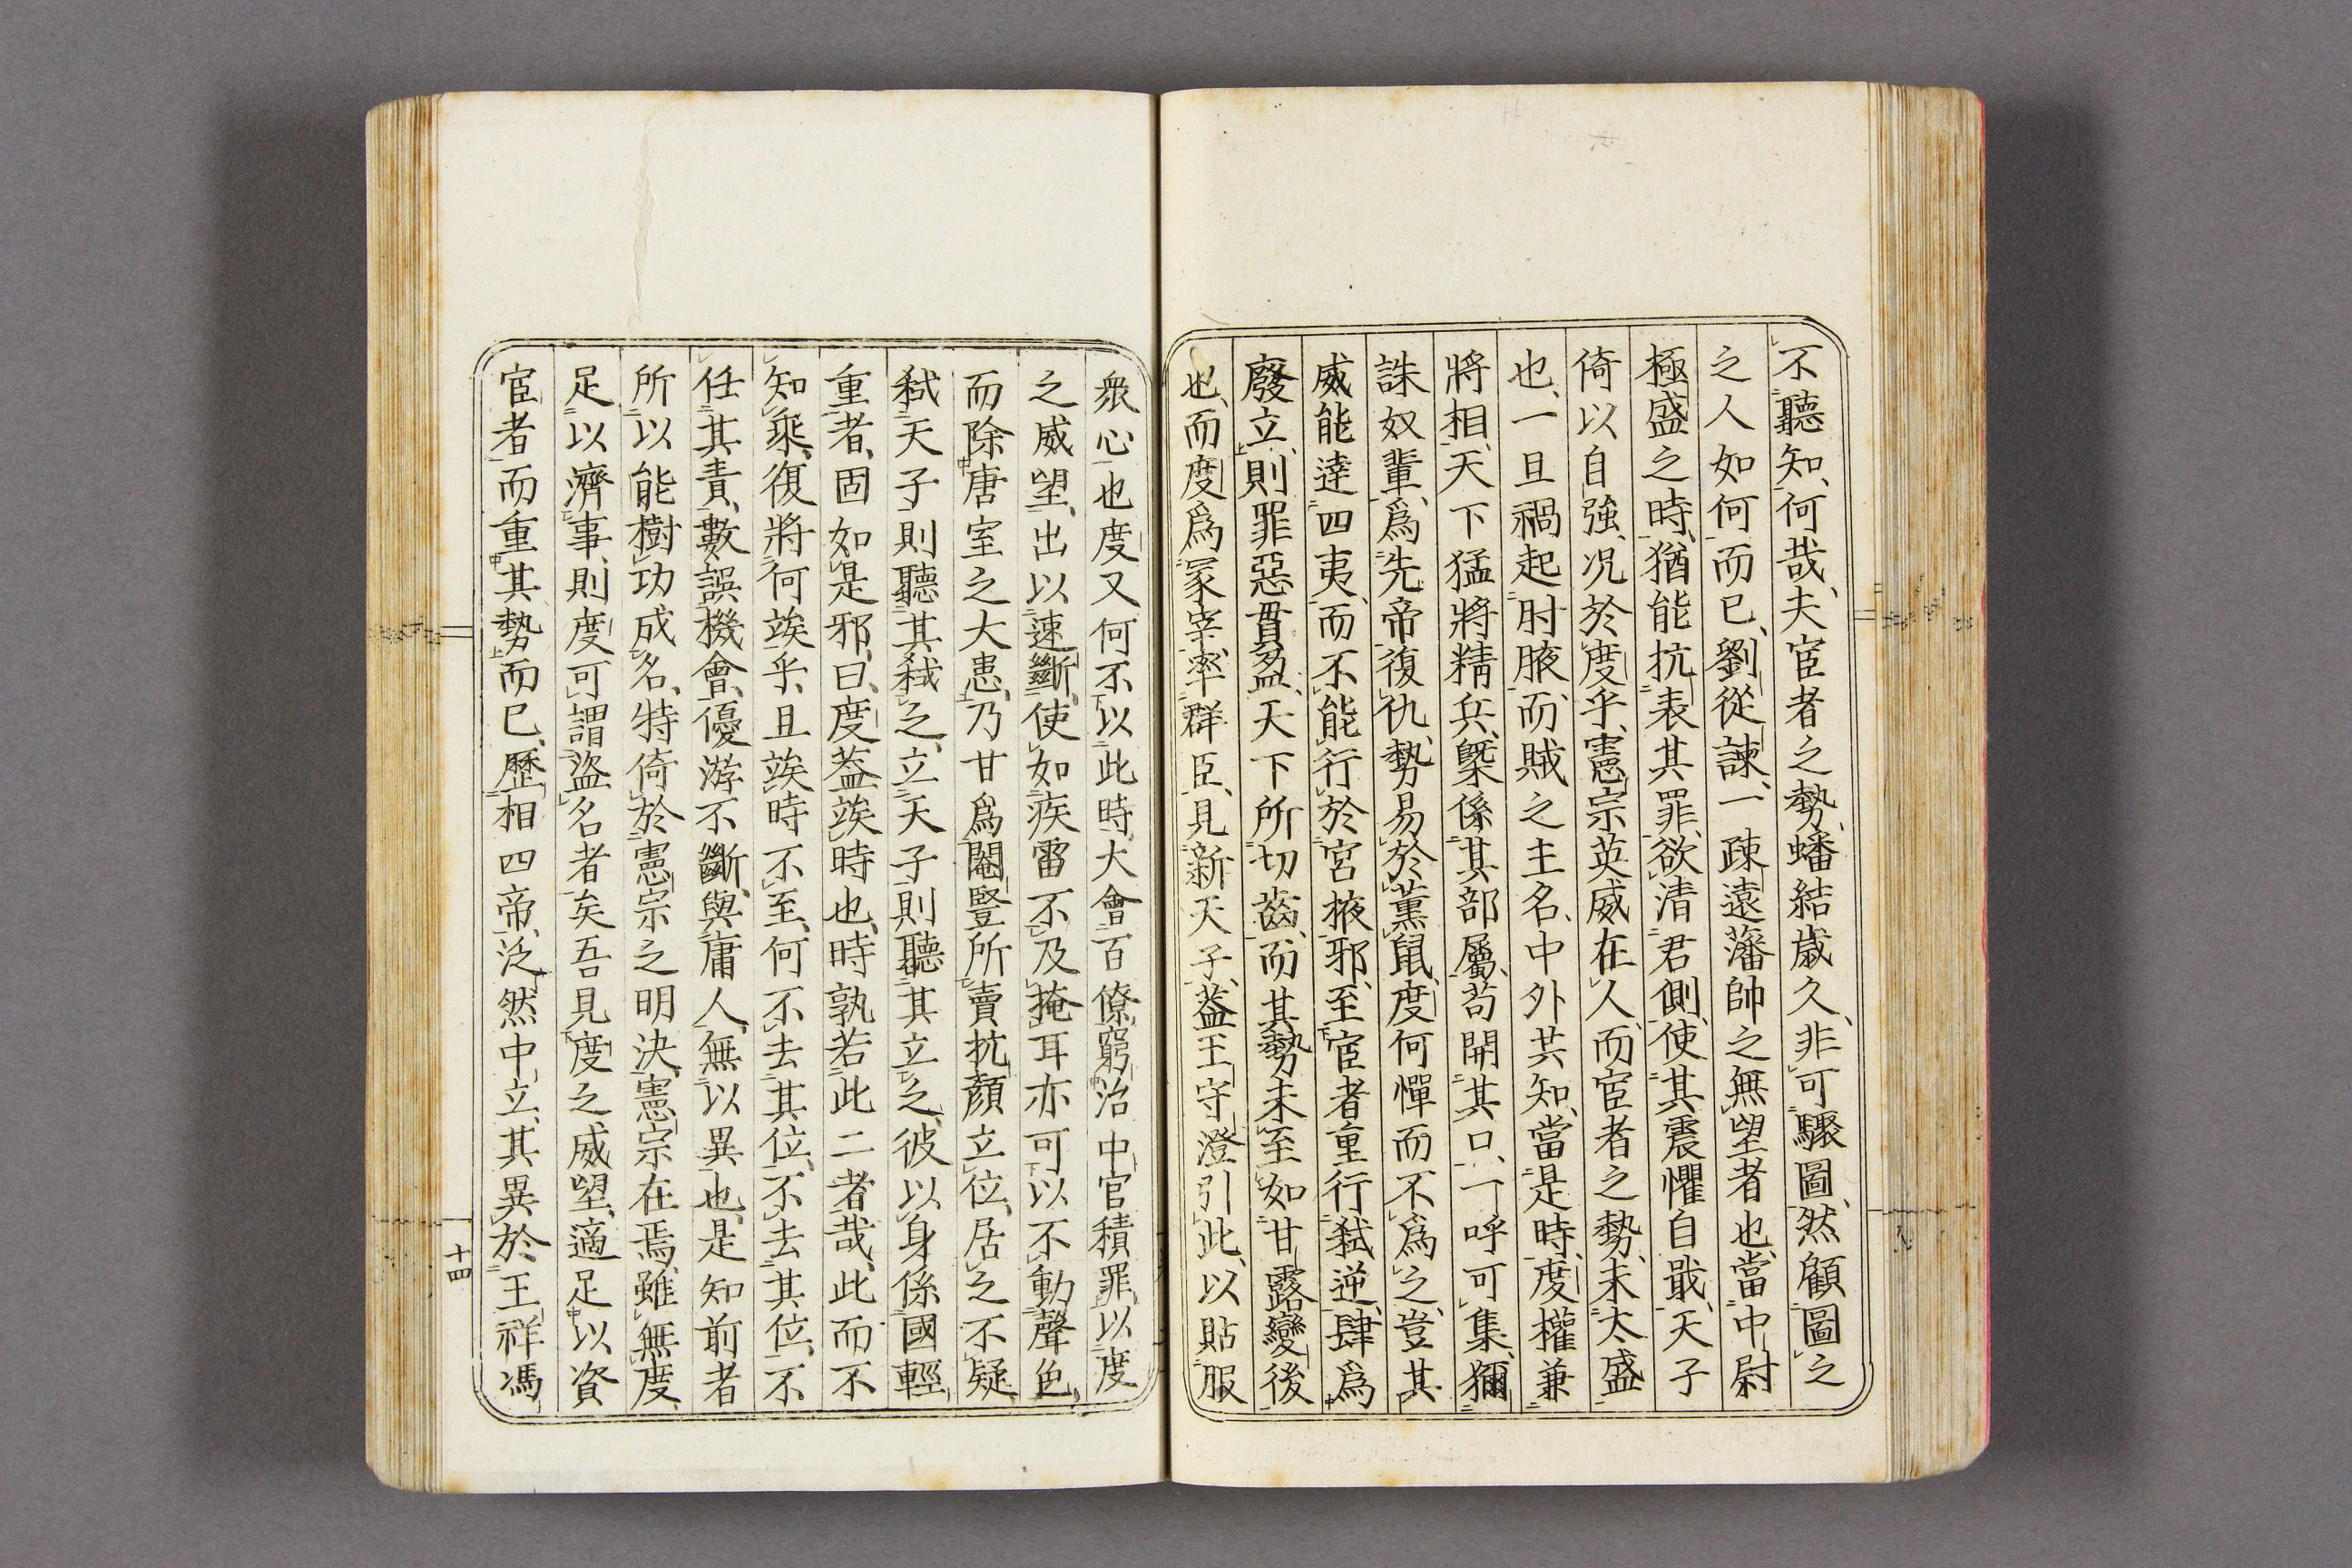 不聽知、何哉、夫宦者之勢、蟠結歲久、非可驟圖、然顧圖之
之人如何而已、劉從諫、一疎遠藩帥之無望者也、當中尉
極盛之時、猶能抗表其罪、欲清君側、使其震懼自戢、天子
倚以自強、况於度乎、憲宗英威在人、而宦者之勢、未太盛
也、一旦禍起肘腋、而賊之主名、中外共知、當是時、度權兼
將相、天下猛將精兵、槩係其部屬、苟開其口、一呼可集、獮
誅奴輩、爲先帝復仇、勢易於薰鼠、度何憚而不爲之、豈其
威能達四夷、而不能行於宮掖邪、至宦者重行弑逆、肆爲
廢立、則罪惡貫盈、天下所切齒、而其勢未至如甘露變後
也、而度爲冢宰、率群臣、見新天子、蓋王守澄引此、以貼服
衆心也、度又何不以此時、大會百僚、窮治中官積罪、以度
之威望、出以速斷、使如疾雷不及掩耳、亦可以不動聲色、
而除唐室之大患、乃甘爲閹豎所賣、抗顏立位、居之不疑、
弑天子、則聽其弑之、立天子、則聽其立之、彼以身係國輕
重者、固如是邪、曰、度蓋竢時也、時孰若此二者哉、此而不
知乘、復將何竢乎、且竢時不至、何不去其位、不去其位、不
任其責、數誤機會、優游不斷、與庸人無以異也、是知前者
所以能樹功成名、特倚於憲宗之明決、憲宗在焉、雖無度、
足以濟事、則度可謂盜名者矣、吾見度之威望、適足以資
宦者、而重其勢而已、歷相四帝、泛然中立、其異於王祥馮
十四